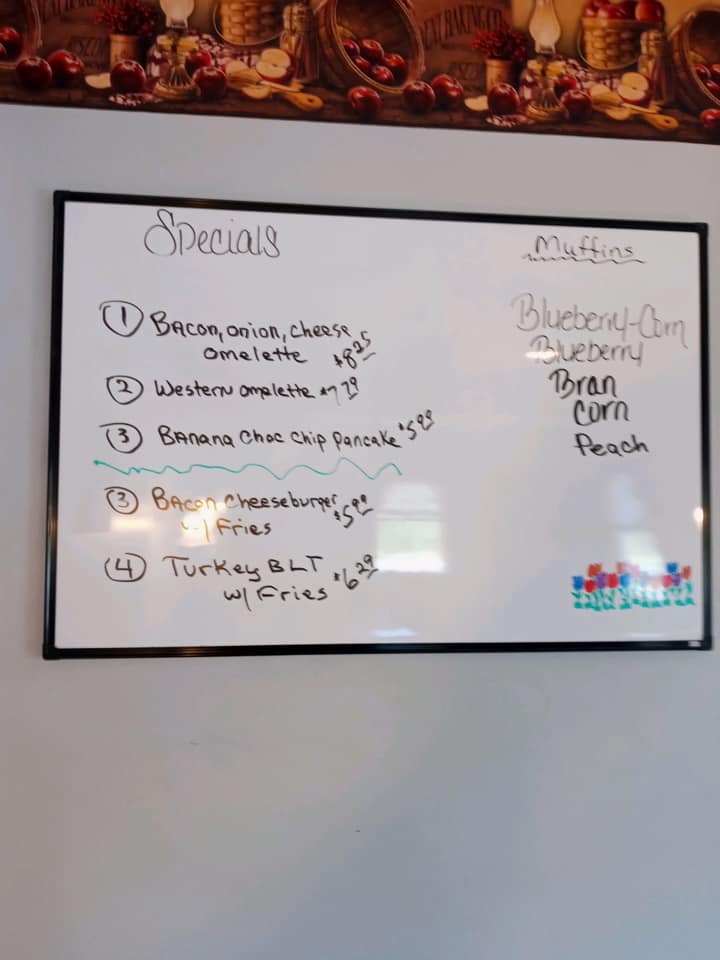 Specials
① Bacon, onion, cheese
omelette $8.25
② Western omelette $7.79
③ Banana Choc Chip Pancake $5.99
③ Bacon Cheeseburger $5.99
w/ Fries
④ Turkey BLT $6.29
w/ Fries
Muffins
Blueberry-Corn
Blueberry
Bran
Corn
Peach
BAKING CO.